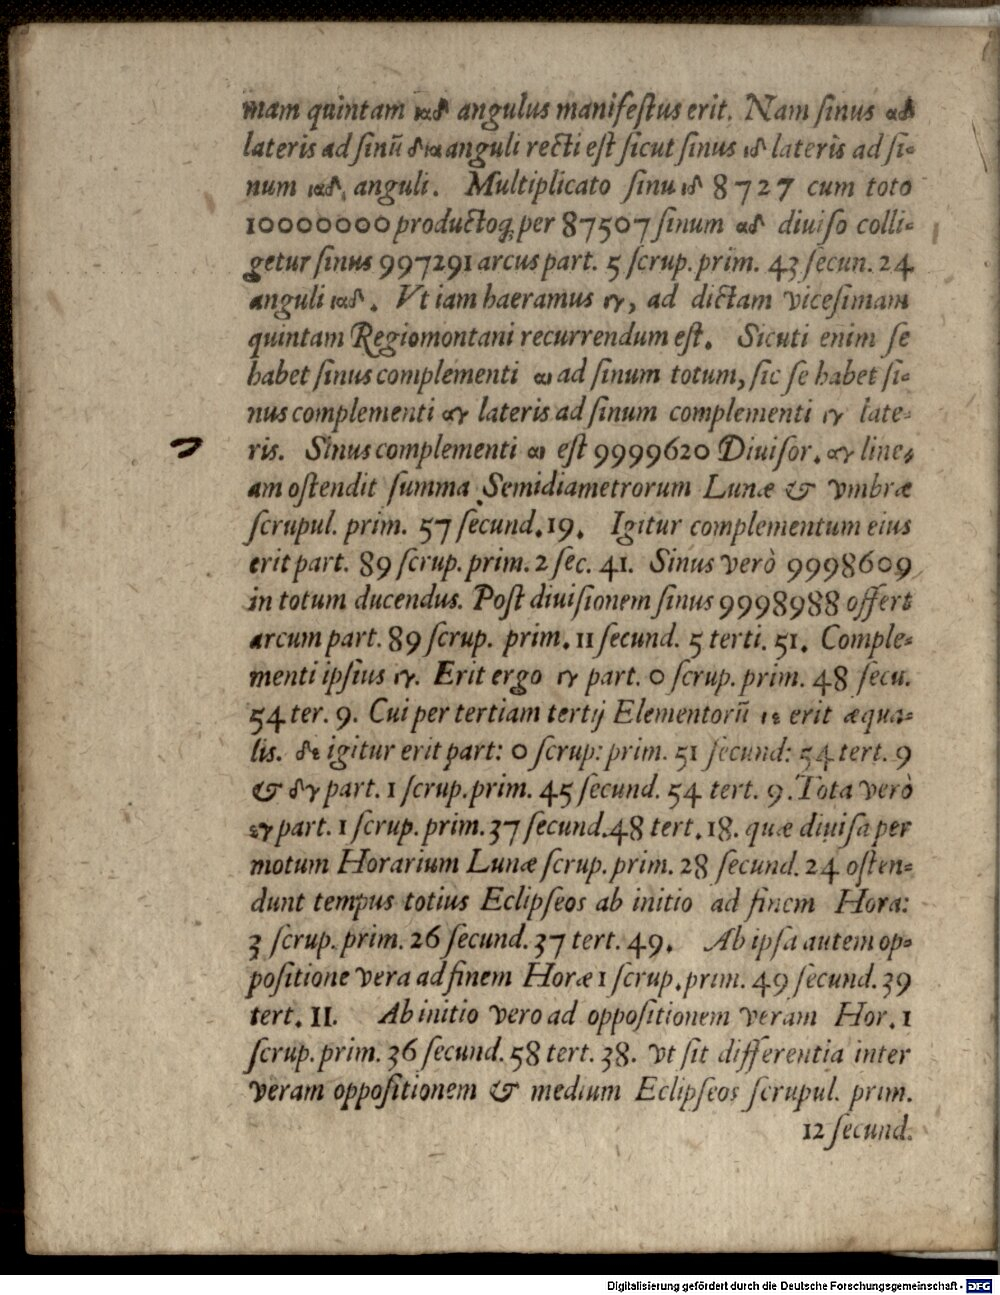 mam quintam ιαδ angulus manifeſtus erit. Nam ſinus αδ
lateris ad ſinũ διαanguli recti eſt ſicut ſinus ιδ lateris ad ſi-
num ιαδ, anguli. Multiplicato ſinu ιδ 8727 cum toto
10000000 productoq; per 87507 ſinum αδ diuiſo colli-
getur ſinus 997291 arcus part. 5 ſcrup. prim. 43 ſecun. 24
anguli ιαδ. Vt iam haeramus εγ, ad dictam viceſimam
quintam Regiomontani recurrendum eſt. Sicuti enim ſe
habet ſinus complementi αι ad ſinum totum, ſic ſe habet ſi-
nus complementi αγ lateris ad ſinum complementi ιγ late-
ris. Sinus complementi αι eſt 9999620 Diuiſor. αγ line-
am oſtendit ſumma Semidiametrorum Lunæ & vmbræ
ſcrupul. prim. 57 ſecund. 19. Igitur complementum eius
erit part. 89 ſcrup. prim. 2 ſec. 41. Sinus verò 9998609
in totum ducendus. Poſt diuiſionem ſinus 9998988 offert
arcum part. 89 ſcrup. prim. 11 ſecund. 5 terti. 51. Comple-
menti ipſius ιγ. Erit ergo ιγ part. 0 ſcrup. prim. 48 ſecu.
54 ter. 9. Cui per tertiam tertij Elementorũ ιε erit æqua-
lis. δε igitur erit part: 0 ſcrup: prim. 51 ſecund: 54 tert. 9
& δγ part. 1 ſcrup. prim. 45 ſecund. 54 tert. 9. Tota verò
εγ part. 1 ſcrup. prim. 37 ſecund. 48 tert. 18. quæ diuiſa per
motum Horarium Lunæ ſcrup. prim. 28 ſecund. 24 oſten-
dunt tempus totius Eclipſeos ab initio ad finem Hora:
3 ſcrup. prim. 26 ſecund. 37 tert. 49. Ab ipſa autem op-
poſitione vera ad finem Horæ 1 ſcrup. prim. 49 ſecund. 39
tert. 11. Ab initio vero ad oppoſitionem veram Hor. 1
ſcrup. prim. 36 ſecund. 58 tert. 38. vt ſit differentia inter
veram oppoſitionem & medium Eclipſeos ſcrupul. prim.
12 ſecund.
Digitalisierung gefördert durch die Deutsche Forschungsgemeinschaft - DFG